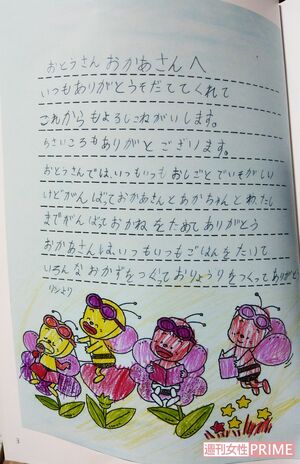 おとうさん おかあさんへ
いつもありがとうそだててくれて
これからもよろしこねがいします。
ちさいころもありがとございます。
おとうさんでは、いつもいつもおしごとでいそがしい
けどがんばっておかあさんとあかちゃんとわたし
までがんばっておかねをためてありがとう
おかあさんは、いつもいつもごはんをたいて
いろんなおかずをつくっておりょうりをつくってありがとう
リンより
3
週刊女性PRIME